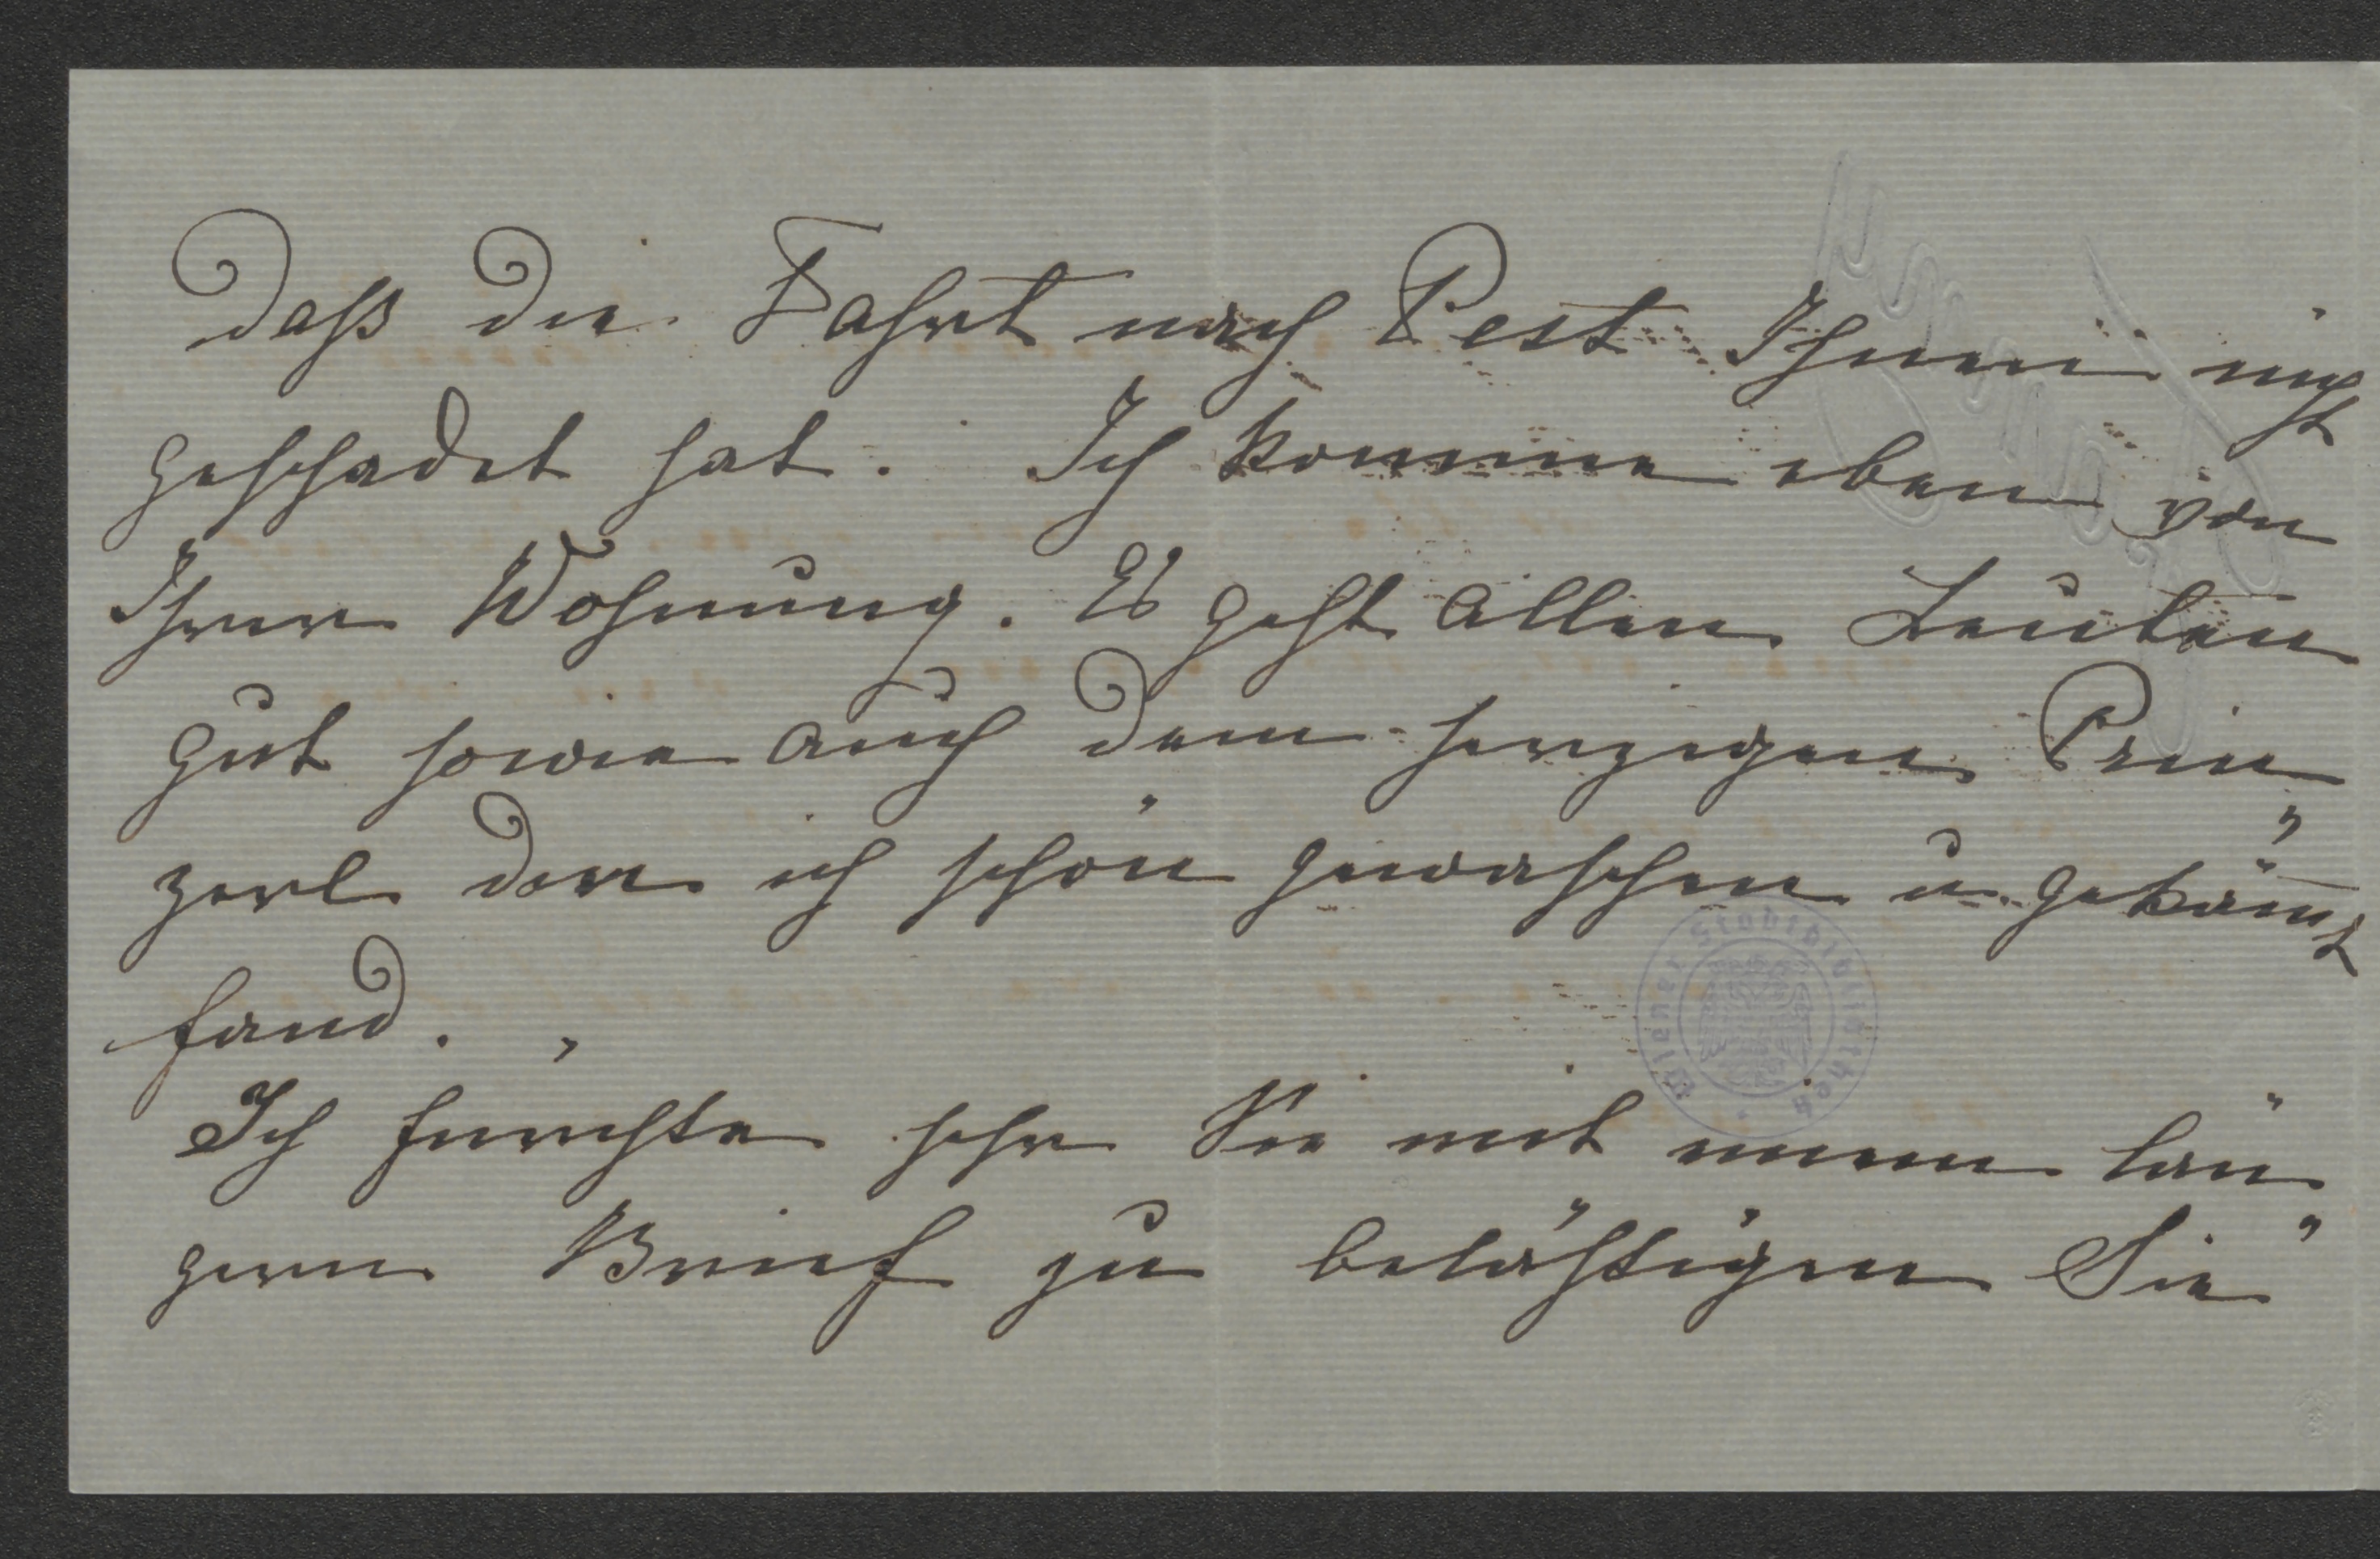 daß die Fahrt nach Pest Ihnen nicht
geschadet hat. Ich komme eben von
Ihrer Wohnung. Es geht allen Leuten
gut sowie auch dem herzigen Prin
zerl den ich schön gewaschen u. gekäm̅t
fand.
Ich fürchte sehr Sie mit einem län
gern Brief zu belästigen Sie
Wiener Stadtbibliothek